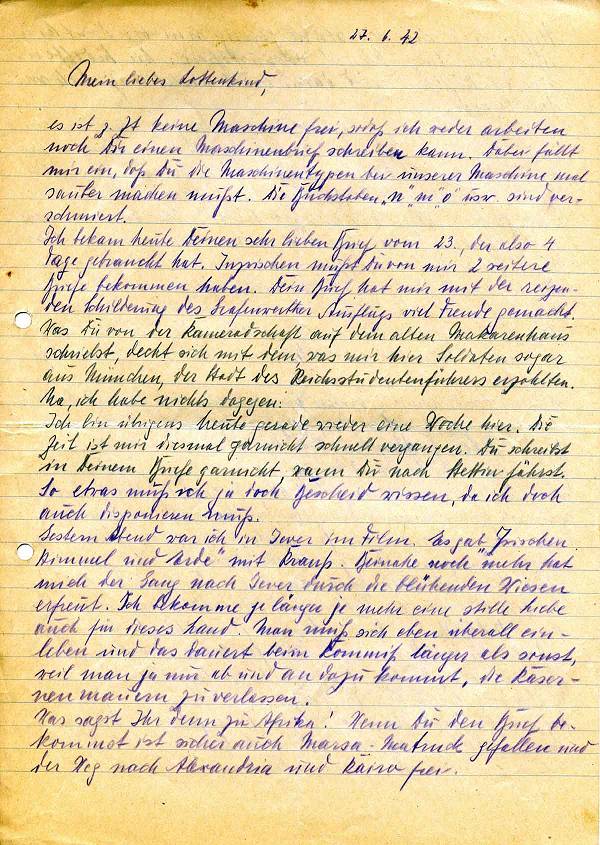 27. 6. 42
Mein liebes Lottenkind,
es ist z. Zt keine Maschine frei, sodaß ich weder arbeiten
noch Dir einen Maschinenbrief schreiben kann. Dabei fällt
mir ein, daß Du die Maschinentypen bei unserer Maschine mal
sauber machen mußt. Die Buchstaben „n" „m", „o" usw. sind ver-
schmiert.
Ich bekam heute Deinen sehr lieben Brief vom 23., der also 4
Tage gebraucht hat. Inzwischen mußt Du von mir 2 weitere
Briefe bekommen haben. Dein Brief hat mir mit der reizen-
den Schilderung des Grafenwerther Ausflugs viel Freude gemacht.
Was Du von der Kameradschaft auf dem alten Makarenhaus
schriebst, deckt sich mit dem was mir hier Soldaten sogar
aus München, der Stadt des Reichsstudentenführers erzählten.
Na, ich habe nichts dagegen!
Ich bin übrigens heute gerade wieder eine Woche hier. Die
Zeit ist mir diesmal garnicht schnell vergangen. Du schreibst
in Deinem Briefe garnicht, wann Du nach Stettin fährst.
So etwas muß ich ja doch Bescheid wissen, da ich doch
auch disponieren muß.
Gestern Abend war ich in Jever im Film. Es gab „Zwischen
Himmel und Erde" mit Krauß. Beinahe noch mehr hat
mich der Gang nach Jever durch die blühenden Wiesen
erfreut. Ich bekomme je länger je mehr eine stille Liebe
auch für dieses Land. Man muß sich eben überall ein-
leben und das dauert beim Kommiß länger als sonst,
weil man ja nur ab und an dazu kommt, die Kaser-
nenmauern zu verlassen.
Was sagst Ihr denn zu Afrika! Wenn Du den Brief be-
kommst ist sicher auch Marsa-Matruk gefallen und
der Weg nach Alexandria und Kairo frei.